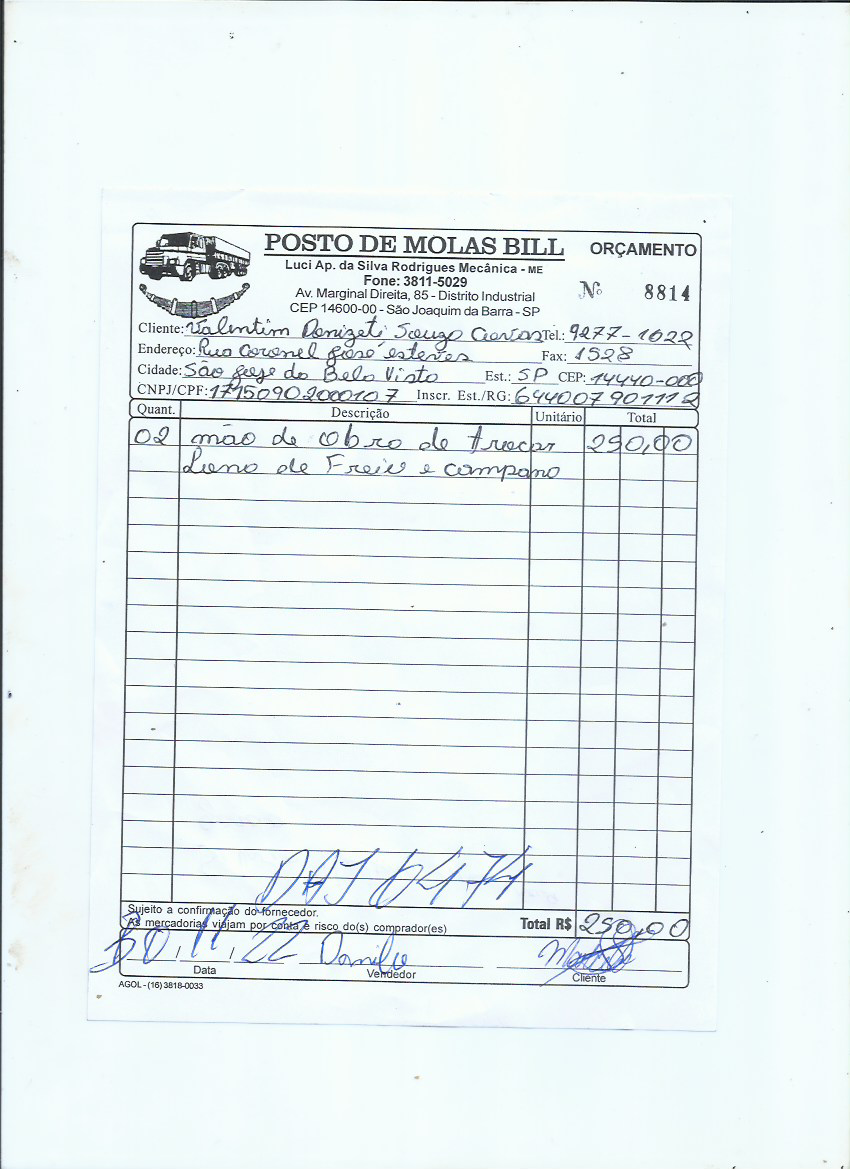 POSTO DE MOLAS BILL
ORÇAMENTO
Luci Ap. da Silva Rodrigues Mecânica - ME
Fone: 3811-5029
Nº 8814
Av. Marginal Direita, 85 - Distrito Industrial
CEP 14600-00 - São Joaquim da Barra - SP
Cliente: Valentim Donizeti Souza Tel.: 9277-1022
Endereço: Rua Coronel José esteves Fax: 1528
Cidade: São José da Bela Vista Est.: SP CEP: 14440-000
CNPJ/CPF: 17150902000107 Inscr. Est./RG: 644007901112
Quant. Descrição Unitário Total
02 mão de obra de trocar 250,00
Lona de Freio e campana
DAJ 6474
Sujeito a confirmação do fornecedor.
As mercadorias viajam por conta e risco do(s) comprador(es)
Total R$ 250,00
30/11/22 Danilo
Data Vendedor Cliente
AGOL - (16) 3818-0033